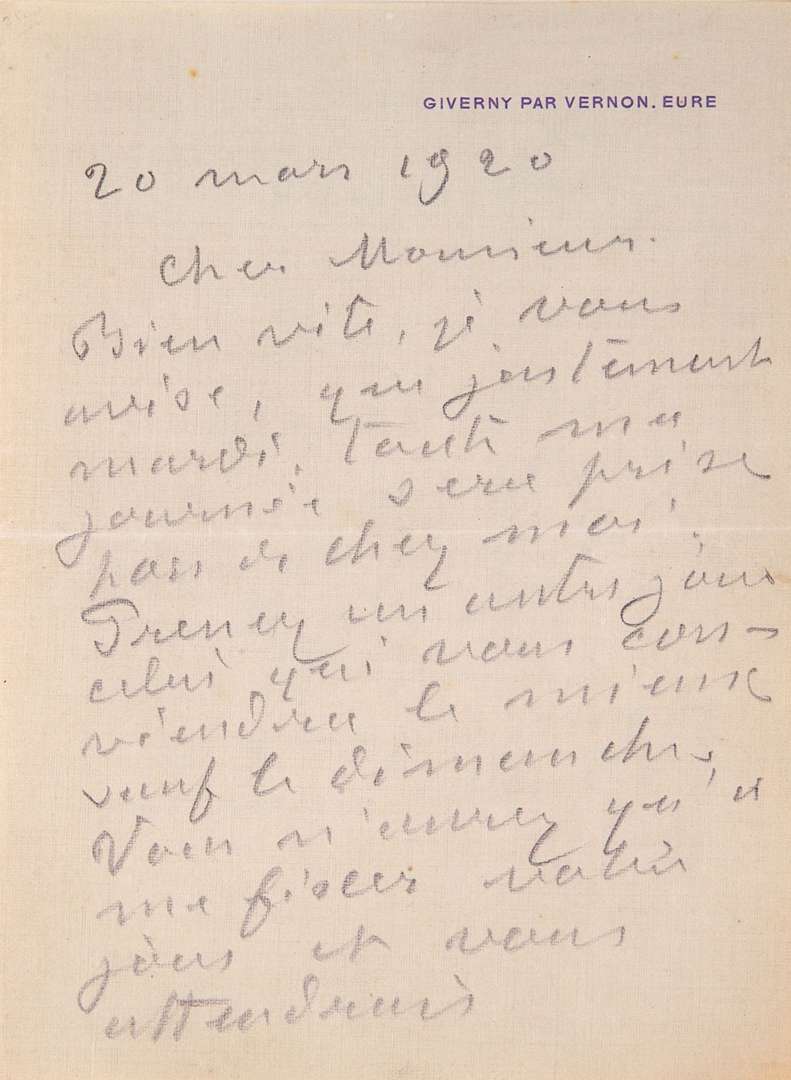 GIVERNY PAR VERNON. EURE
20 mars 1920
Cher Monsieur.
Bien vite, je vous
avise, que justement
mardi, toute ma
journée sera prise
pas de chez moi.
Prenez un autre jour
celui qui vous con-
viendra le mieux
sauf le dimanche,
Vous n'aurez qu'à
me fixer votre
jour et vous
attendrais